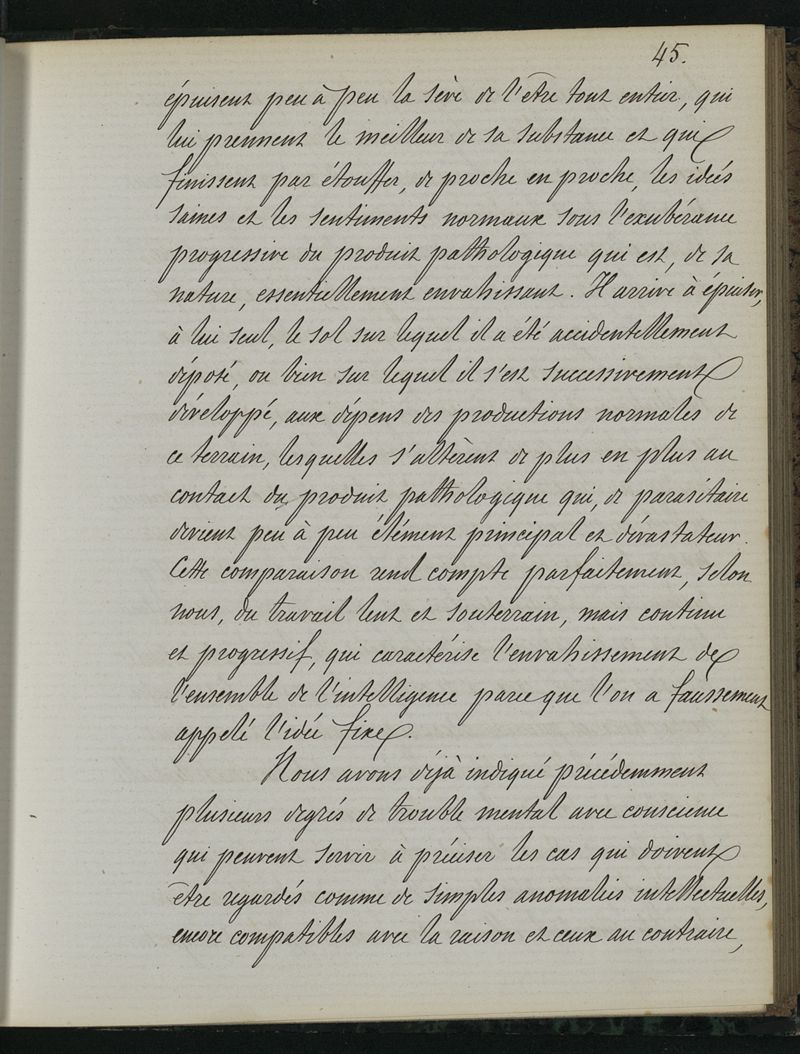 45.
épuisent peu à peu la sève de l'être tout entier, qui
lui prennent le meilleur de sa substance et qui
finissent par étouffer, de proche en proche, les idées
saines et les sentiments normaux sous l'exubérance
progressive du produit pathologique qui est, de sa
nature, essentiellement envahissant. Il arrive à épuiser,
à lui seul, le sol sur lequel il a été accidentellement
déposé, ou bien sur lequel il s'est successivement
développé, aux dépens des productions normales de
ce terrain, lesquelles s'altèrent de plus en plus au
contact du produit pathologique qui, de parasitaire
devient peu à peu élément principal et dévastateur.
Cette comparaison rend compte parfaitement, selon
nous, du travail lent et souterrain, mais continu
et progressif, qui caractérise l'envahissement de
l'ensemble de l'intelligence par ce que l'on a faussement
appelé l'idée fixe.
Nous avons déjà indiqué précédemment
plusieurs degrés de trouble mental avec conscience
qui peuvent servir à préciser les cas qui doivent
être regardés comme de simples anomalies intellectuelles,
encore compatibles avec la raison et ceux au contraire,